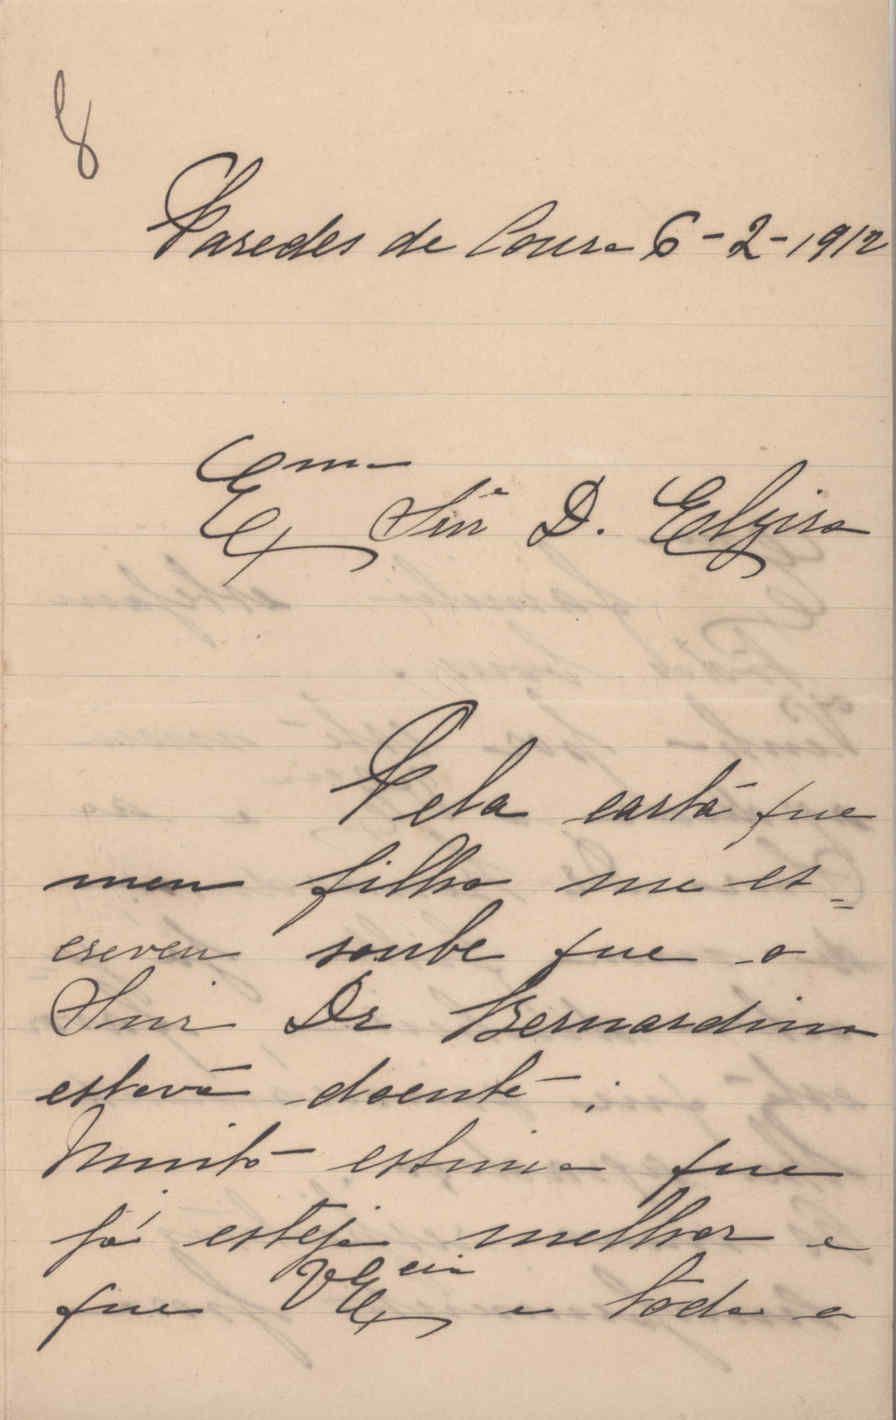 8
Paredes de Coura 6-2-1912
Exma Snrª D. Elzira
Pela carta que
meu filho me es=
creveu soube que o
Snr Dr Bernardino
estava doente;
Muito estimo que
já esteja melhor e
que V Excia e toda a